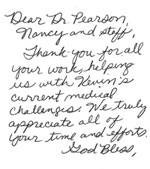 Dear Dr. Pearson,
Nancy and staff,
Thank you for all
your work, helping
us with Kevin's
current medical
challenges. We truly
appreciate all of
your time and efforts.
God Bless,